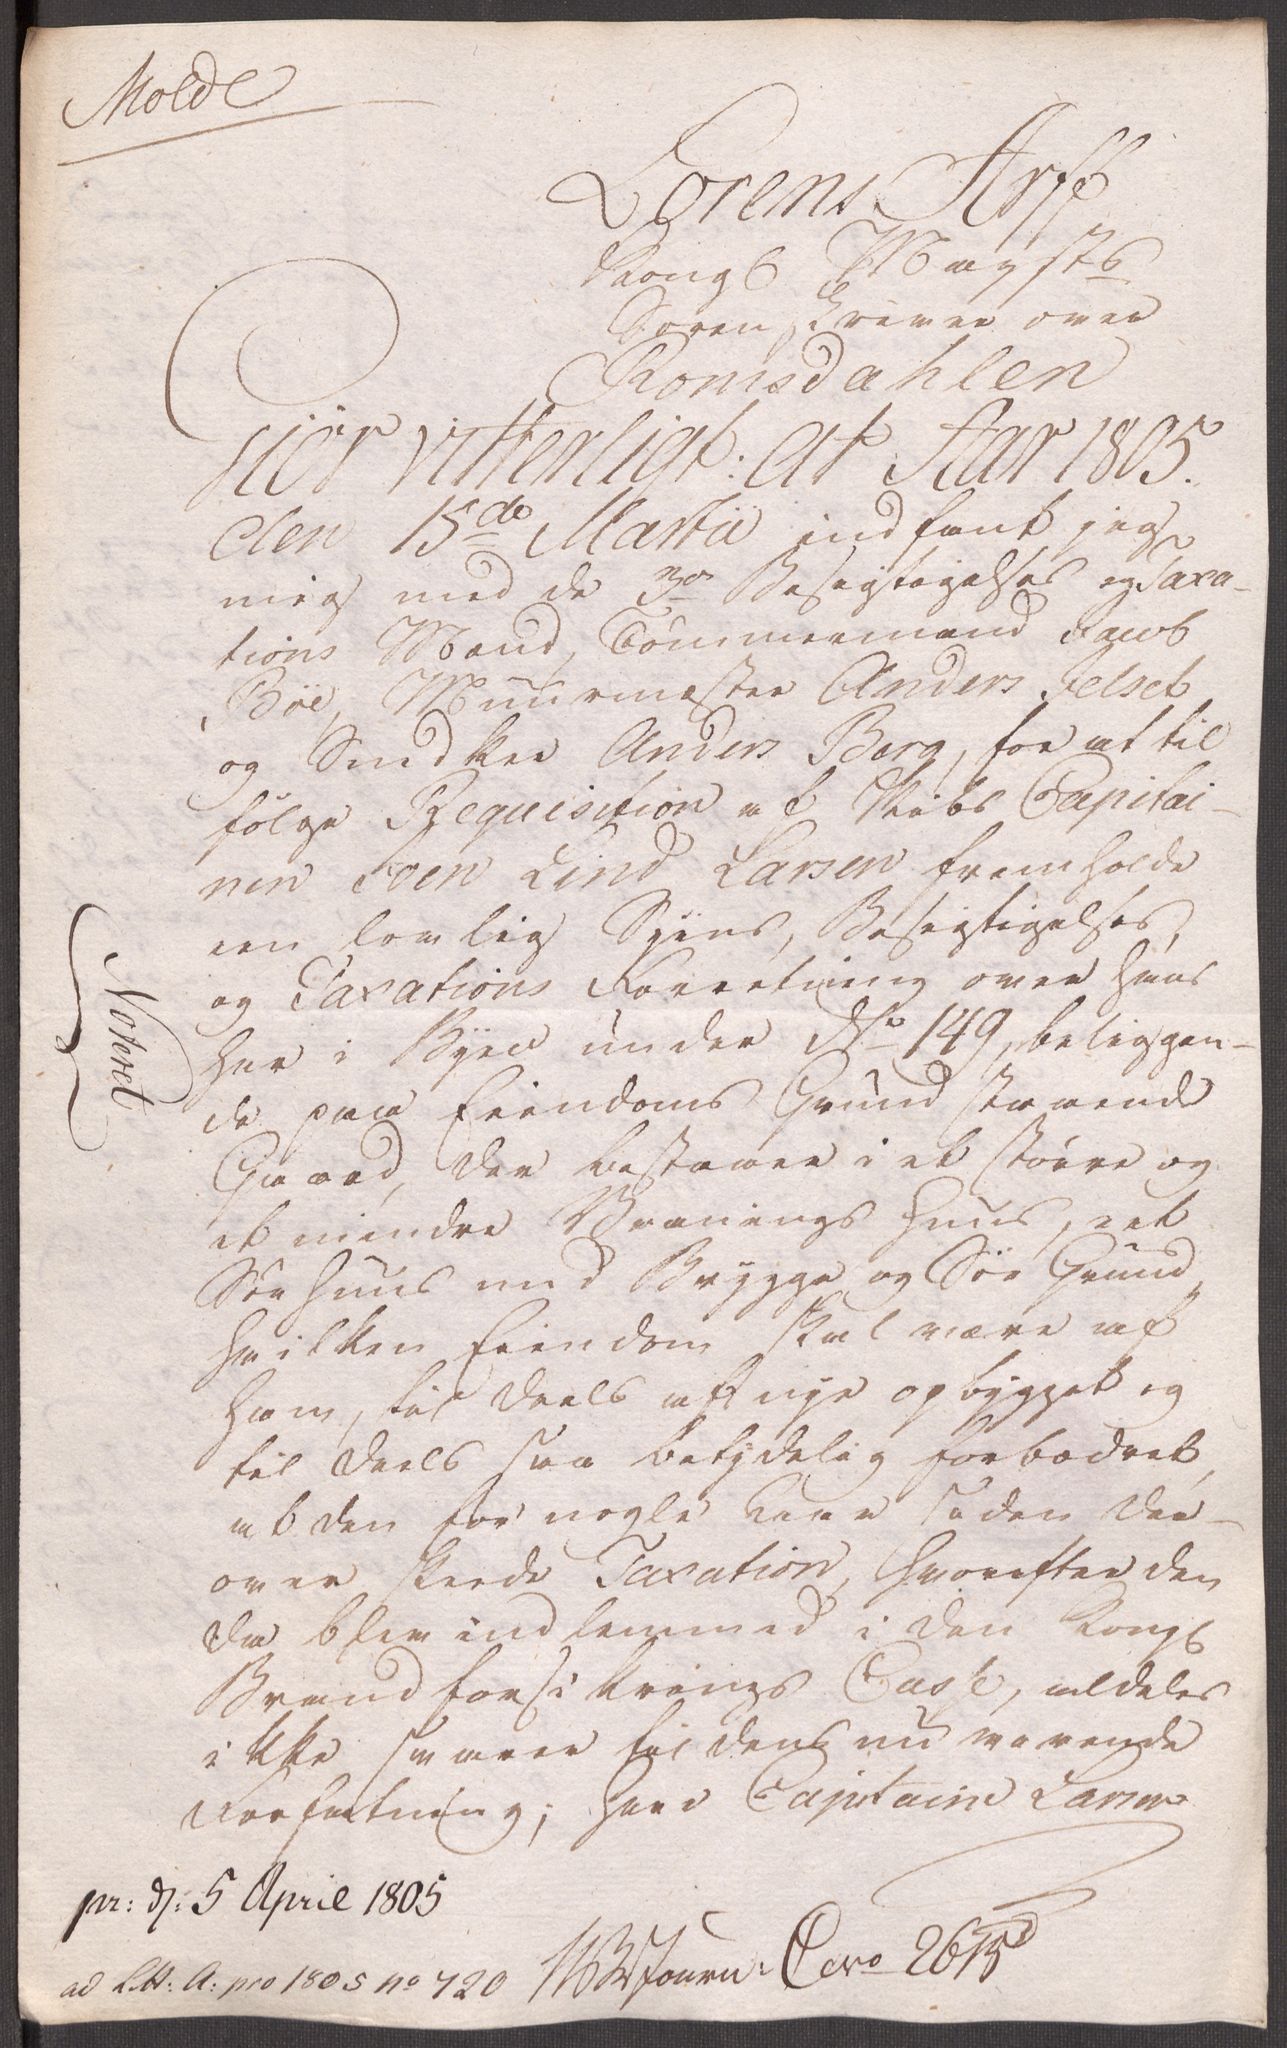 Molde
Lorens Arff
Kongl Mayests
Sorenskriver over
Romsdahlen
Giör vitterligt: at Aar 1805.
den 15de Martii indfant jeg
mig med de 3de Besigtigelses og Taxa-
tions Mænd, Tømmermand Jacob
Böe, Muurmester Anders Felset
og Snedker Anders Borg, for at til
følge Requisition af Skibs Capitai-
nen Iver Lind Larsen fremholde
een lovlig Syens, Besigtigelses,
og Taxations Forretning over hans
her i Byen under No 149, beliggen-
de paa Eiendoms Grund staaende
Gaard, der bestaaer i et større og
et mindre Vaanings Huus, et
Söe Huus med Brygge og Söe Grund,
hvilken Eiendom skal være af
ham, til deels af nye opbygget og
til deels saa betydelig forbædret,
at den for nogle Aar siden der-
over skeede Taxation, hvorefter den
da blev indlemmed i den Kongl
Brandforsikrings Casse, aldeles
ikke svarer til dens nu værende
Forfatning; Herr Capitaine Larsen
Notret
pr: d: 5 April 1805
ad Litt: A: pro 1805 no 720
Journ: No 2615